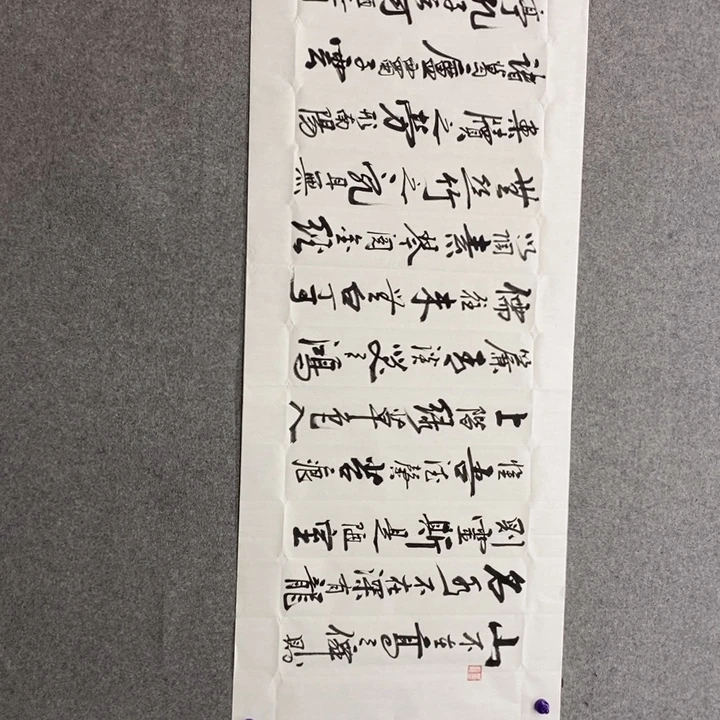 山不在高有僊則
名水不在深有龍
則靈斯是陋室
惟吾德馨苔痕
上階綠草色入
簾青談笑有鴻
儒往來無白丁可
以調素琴閱金經
無絲竹之亂耳無
案牘之勞形南陽
諸葛廬西蜀子雲
亭孔子云何